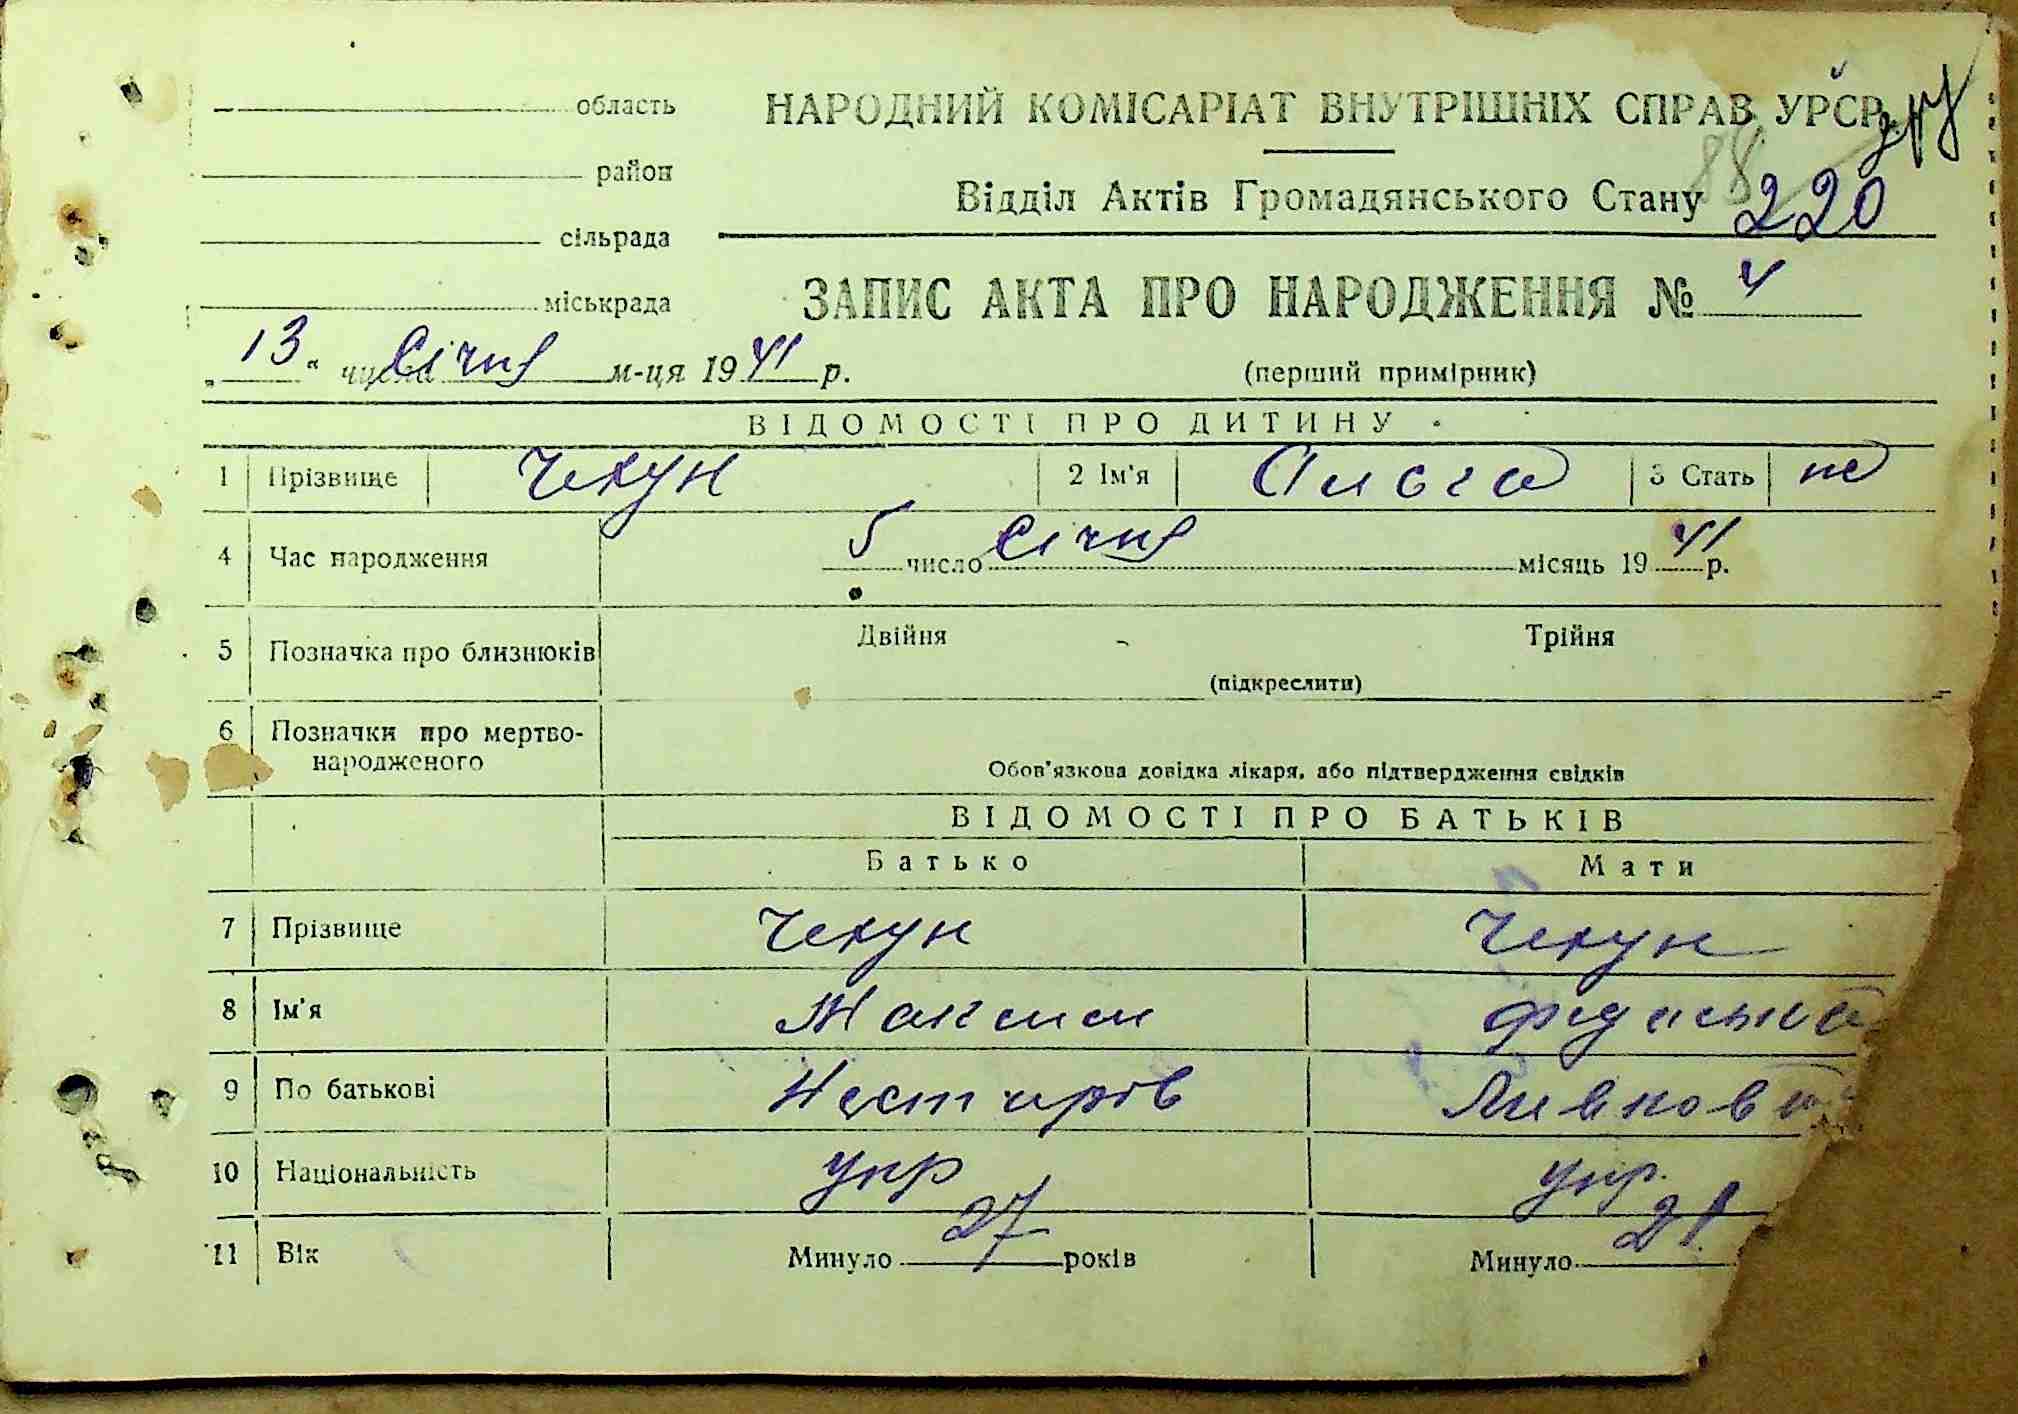 область НАРОДНИЙ КОМІСАРІАТ ВНУТРІШНІХ СПРАВ УРСР
район
Відділ Актів Громадянського Стану 88 220
сільрада
міськрада ЗАПИС АКТА ПРО НАРОДЖЕННЯ № 4
„13“ числа Січня м-ця 1941 р. (перший примірник)
ВІДОМОСТІ ПРО ДИТИНУ
1 Прізвище Чехун 2 Ім'я Ольга 3 Стать ж
4 Час народження 5 число Січня місяць 1941 р.
5 Позначка про близнюків Двійня Трійня
(підкреслити)
6 Позначки про мертво-
народженого Обов'язкова довідка лікаря, або підтвердження свідків
ВІДОМОСТІ ПРО БАТЬКІВ
Батько Мати
7 Прізвище Чехун Чехун
8 Ім'я Максим
9 По батькові
10 Національність укр укр.
11 Вік Минуло 27 років Минуло